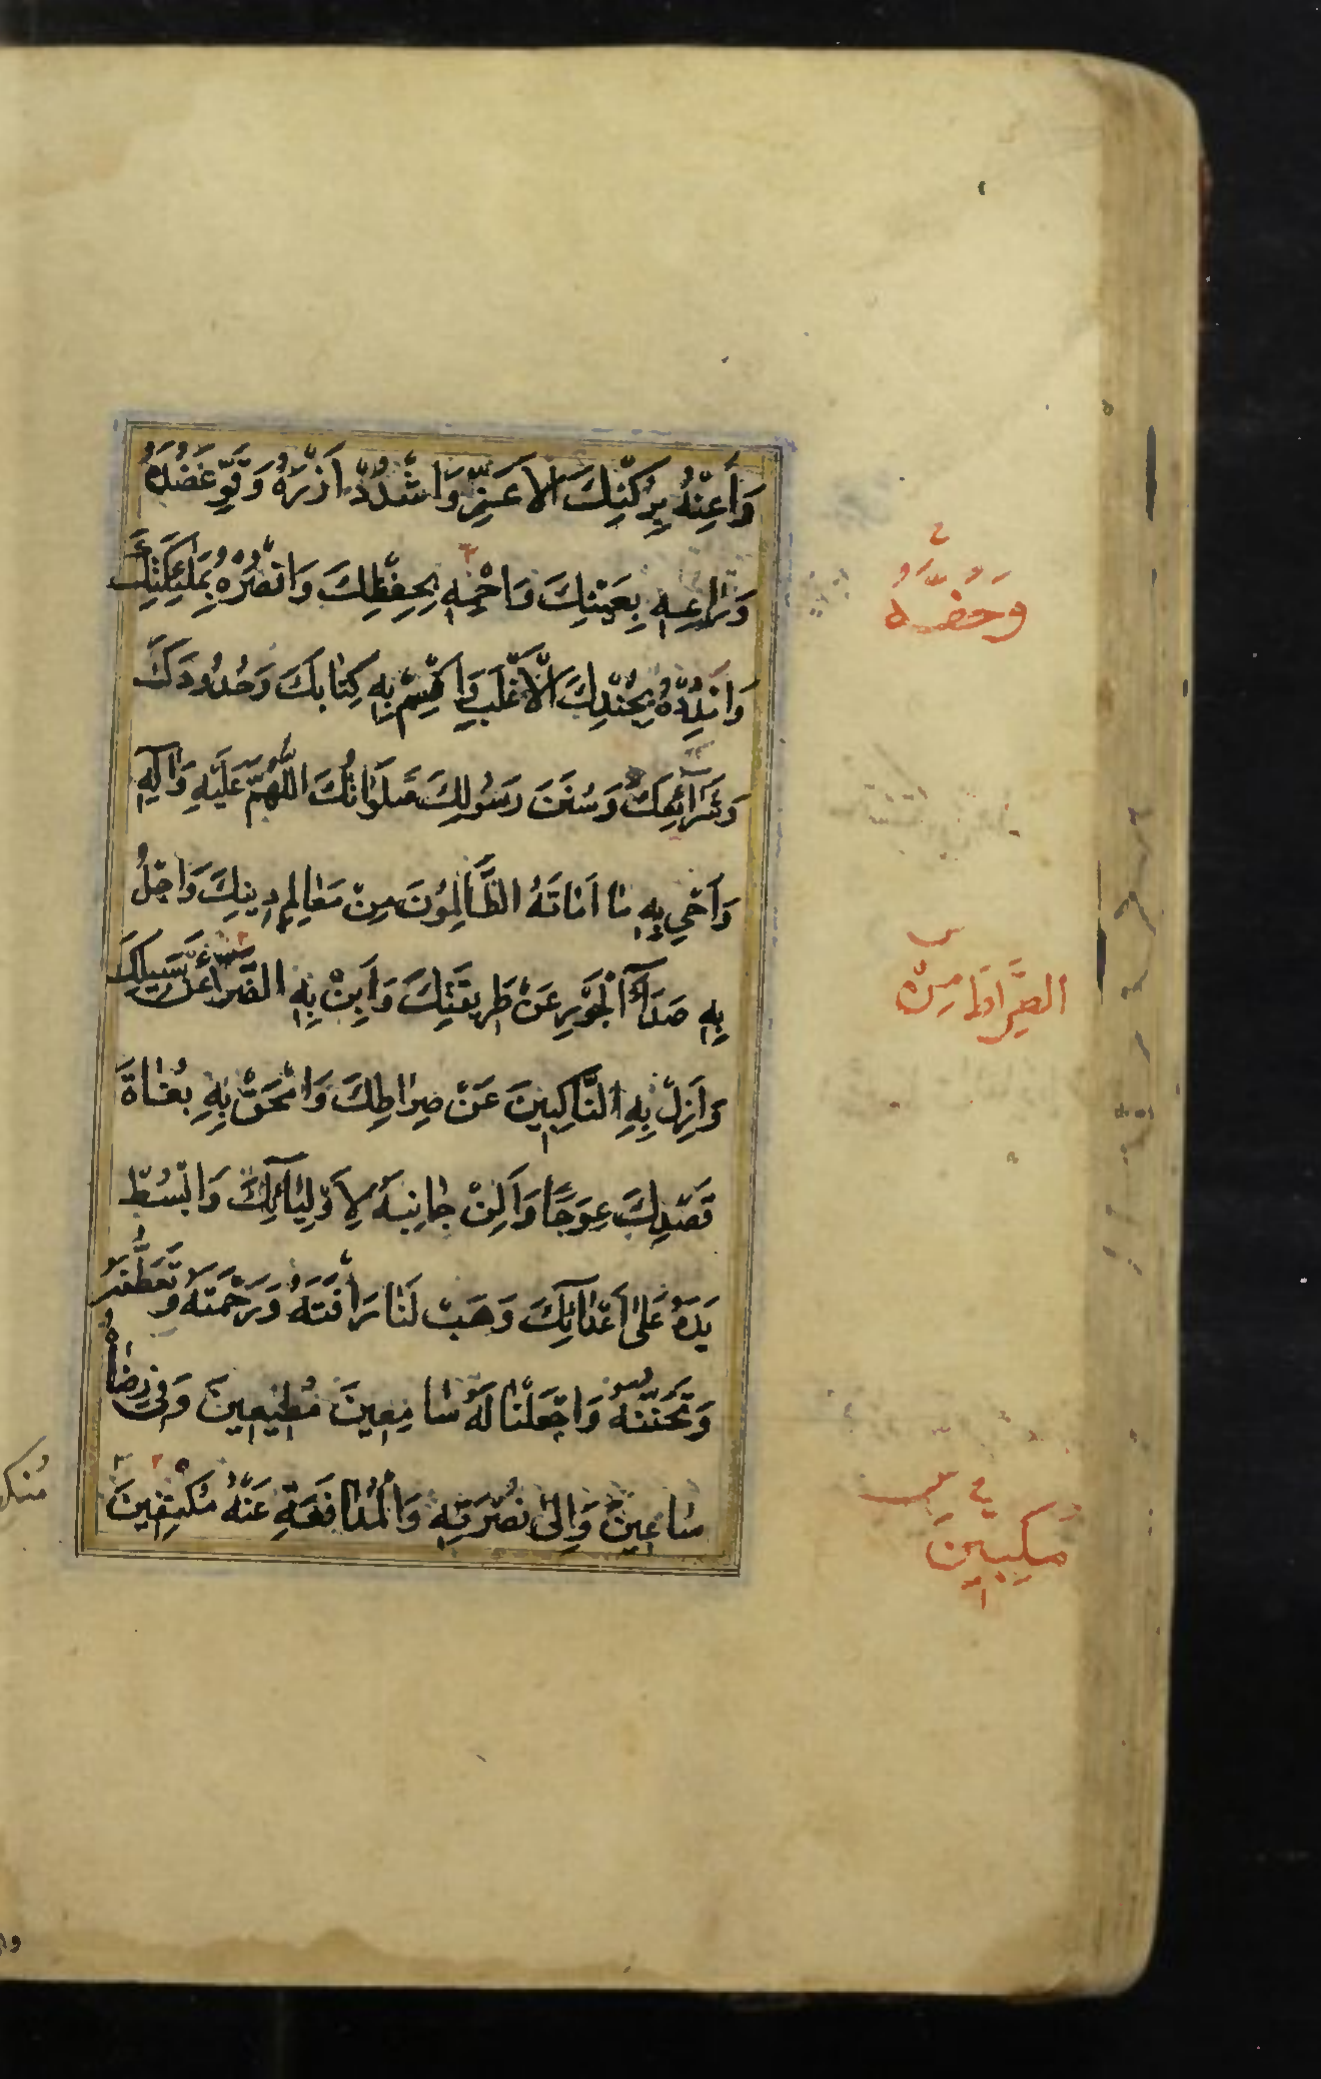 وَأَعِنْهُ بِرُكْنِكَ الْأَعَزِّ وَاشْدُدْ أَزْرَهُ وَقَوِّ عَضُدَهُ
وَرَاعِهِ بِعَيْنِكَ وَاحْمِهِ بِحِفْظِكَ وَانْصُرْهُ بِمَلَائِكَتِكَ
وحفّه
وَامْدُدْهُ بِجُنْدِكَ الْأَغْلَبِ وَأَقِمْ بِهِ كِتَابَكَ وَحُدُودَكَ
وَشَرَائِعَكَ وَسُنَنَ رَسُولِكَ صَلَوَاتُكَ اللَّهُمَّ عَلَيْهِ وَآلِهِ
وَأَحْيِ بِهِ مَا أَمَاتَهُ الظَّالِمُونَ مِنْ مَعَالِمِ دِينِكَ وَاجْلُ
بِهِ صَدَأَ الْجَوْرِ عَنْ طَرِيقَتِكَ وَأَبِنْ بِهِ الضَّرَّاءَ عَنْ سَبِيلِكَ
الصِّرَاطَ مِنْ
وَأَزِلْ بِهِ النَّاكِبِينَ عَنْ صِرَاطِكَ وَامْحَقْ بِهِ بُغَاةَ
قَصْدِكَ عِوَجًا وَأَلِنْ جَانِبَهُ لِأَوْلِيَائِكَ وَابْسُطْ
يَدَهُ عَلَى أَعْدَائِكَ وَهَبْ لَنَا رَأْفَتَهُ وَرَحْمَتَهُ وَتَعَطُّفَهُ
وَتَحَنُّنَهُ وَاجْعَلْنَا لَهُ سَامِعِينَ مُطِيعِينَ وَفِي رِضَاهُ
سَاعِينَ وَإِلَى نُصْرَتِهِ وَالْمُدَافَعَةِ عَنْهُ مُكْنِفِينَ